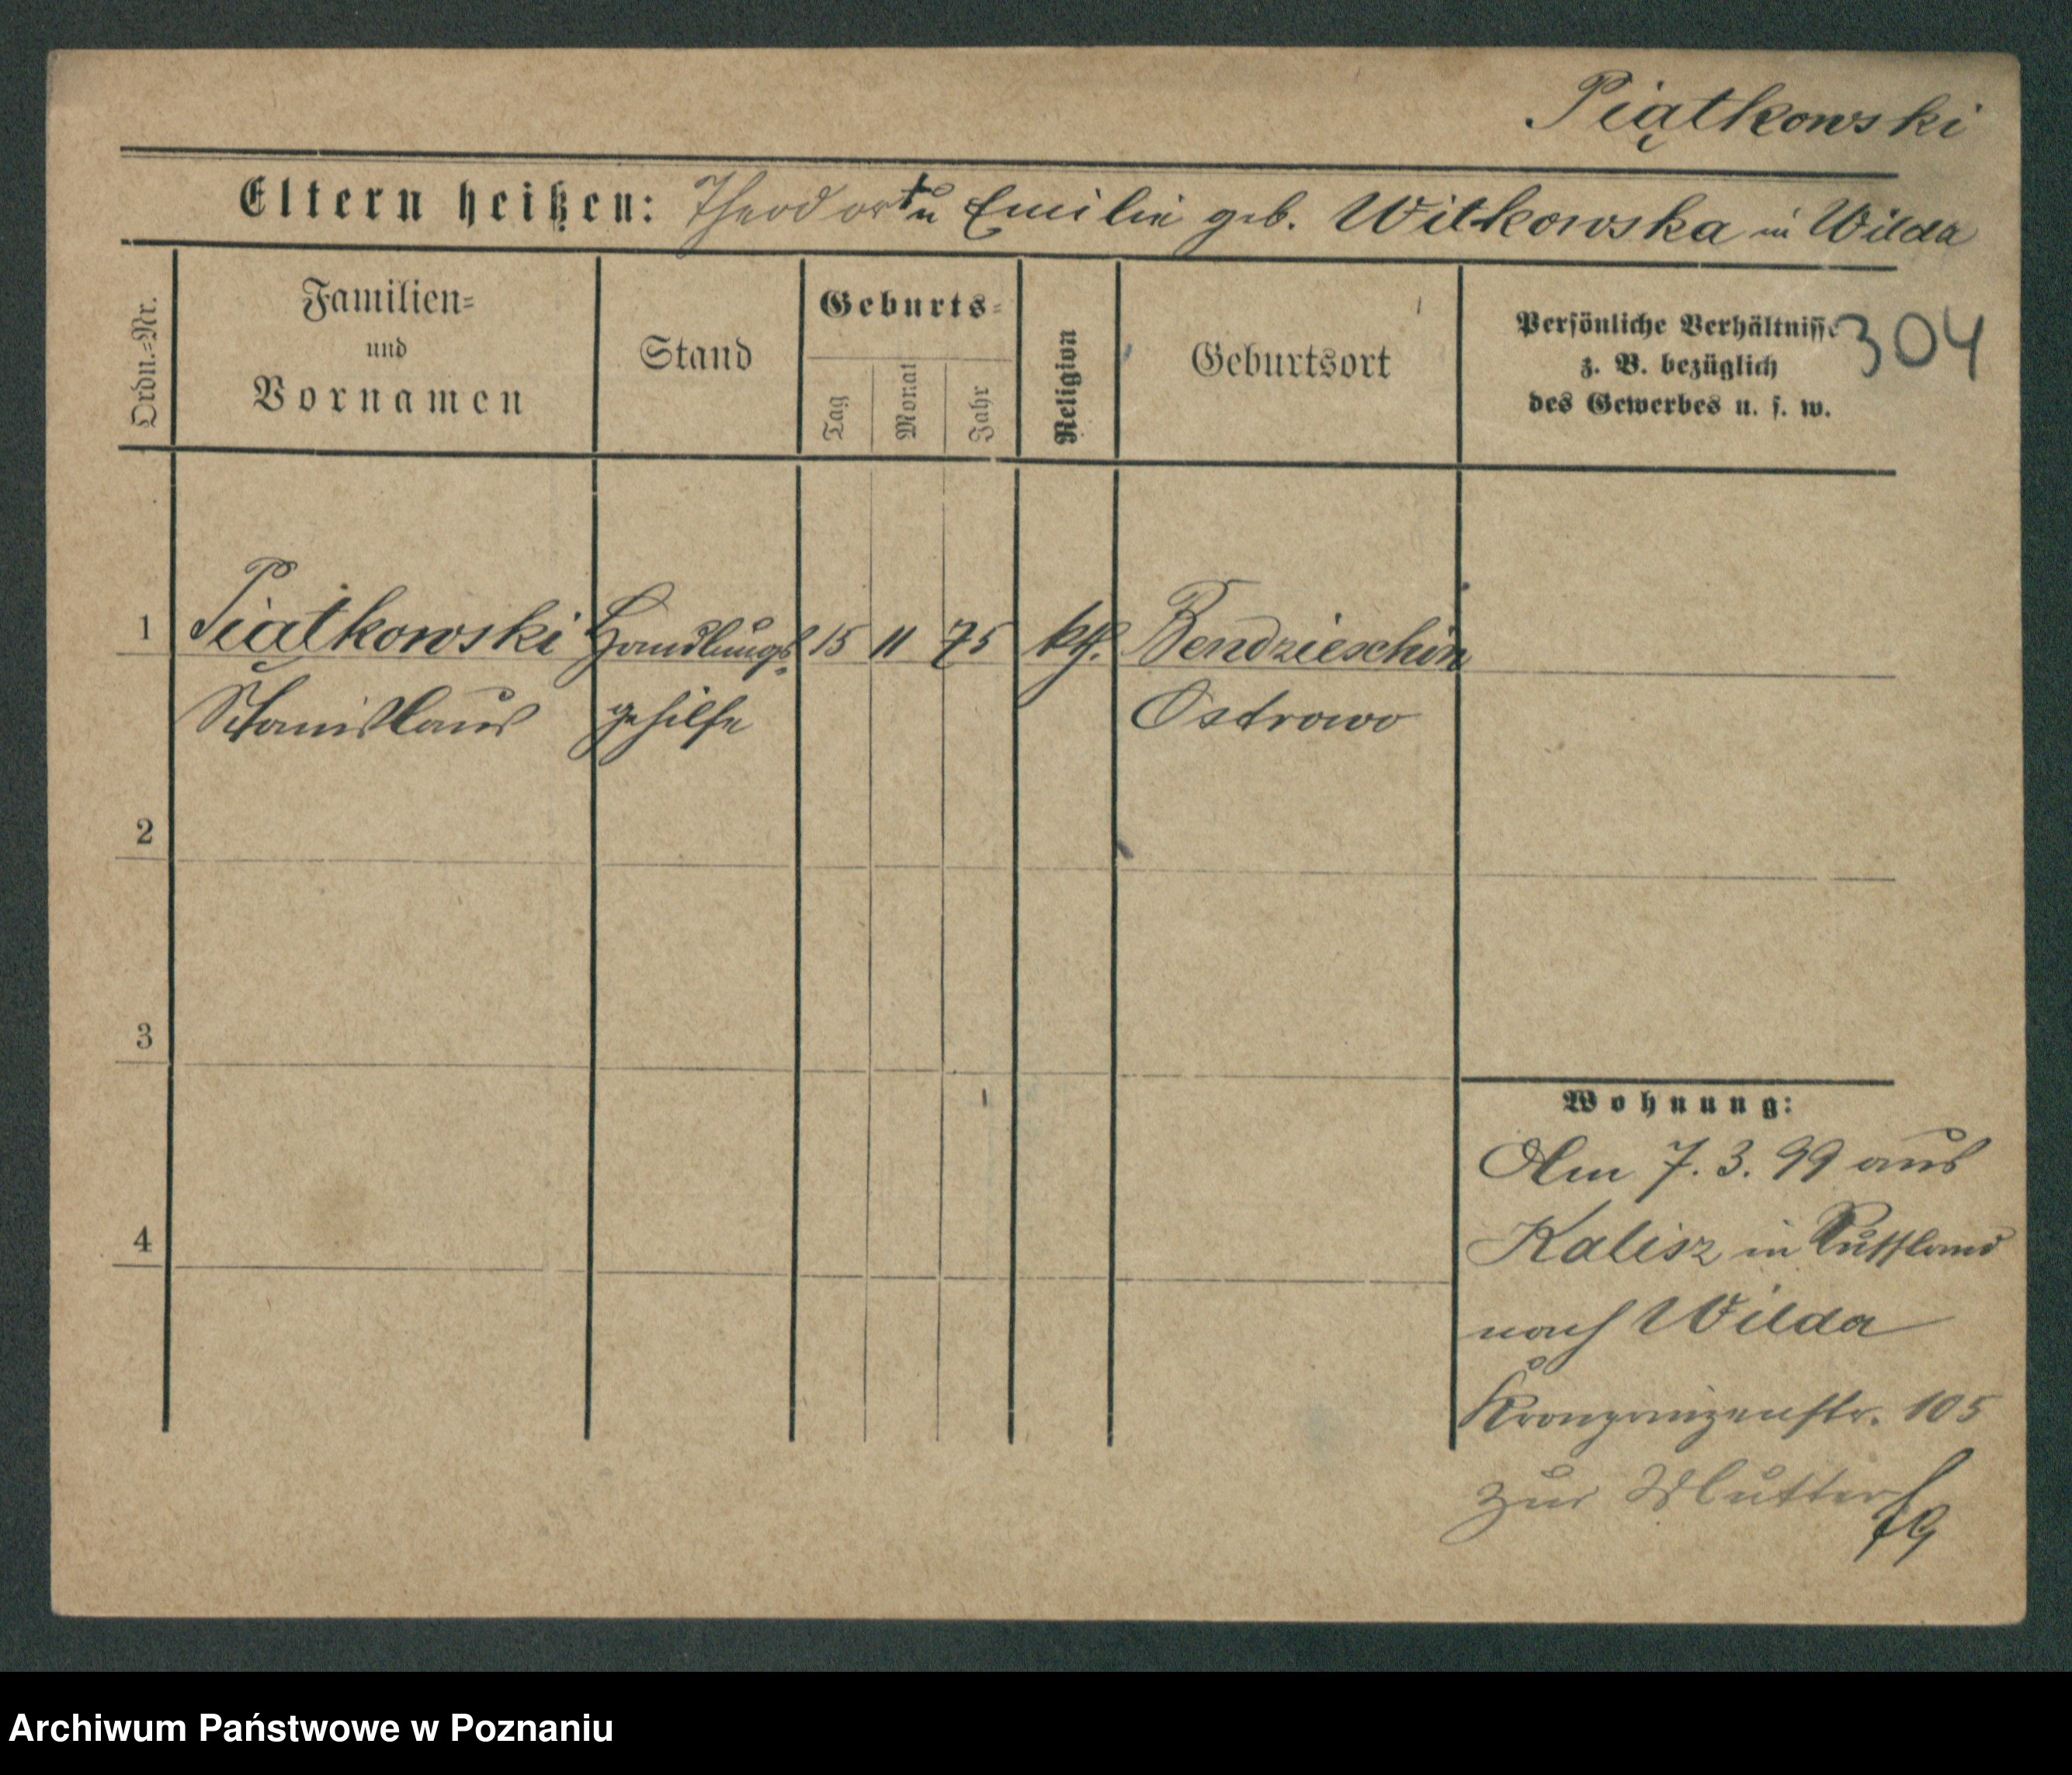 Piątkowski
Eltern heißen: Theodor † u Emilie geb. Witkowska in Wilda
Ordn.=Nr.
Familien=
und
Vornamen
Stand
Geburts=
Tag
Monat
Jahr
Religion
Geburtsort
Persönliche Verhältnisse
z. B. bezüglich
des Gewerbes u. s. w.
304
1 Piątkowski Handlungs- 15 11 75 kth. Bendzieschin
Stanislaus gehilfe Ostrowo
2
3
4
Wohnung:
Am 7. 3. 99 aus
Kalisz in Russland
nach Wilda
Kronprinzenstr. 105
zur Mutter
Archiwum Państwowe w Poznaniu